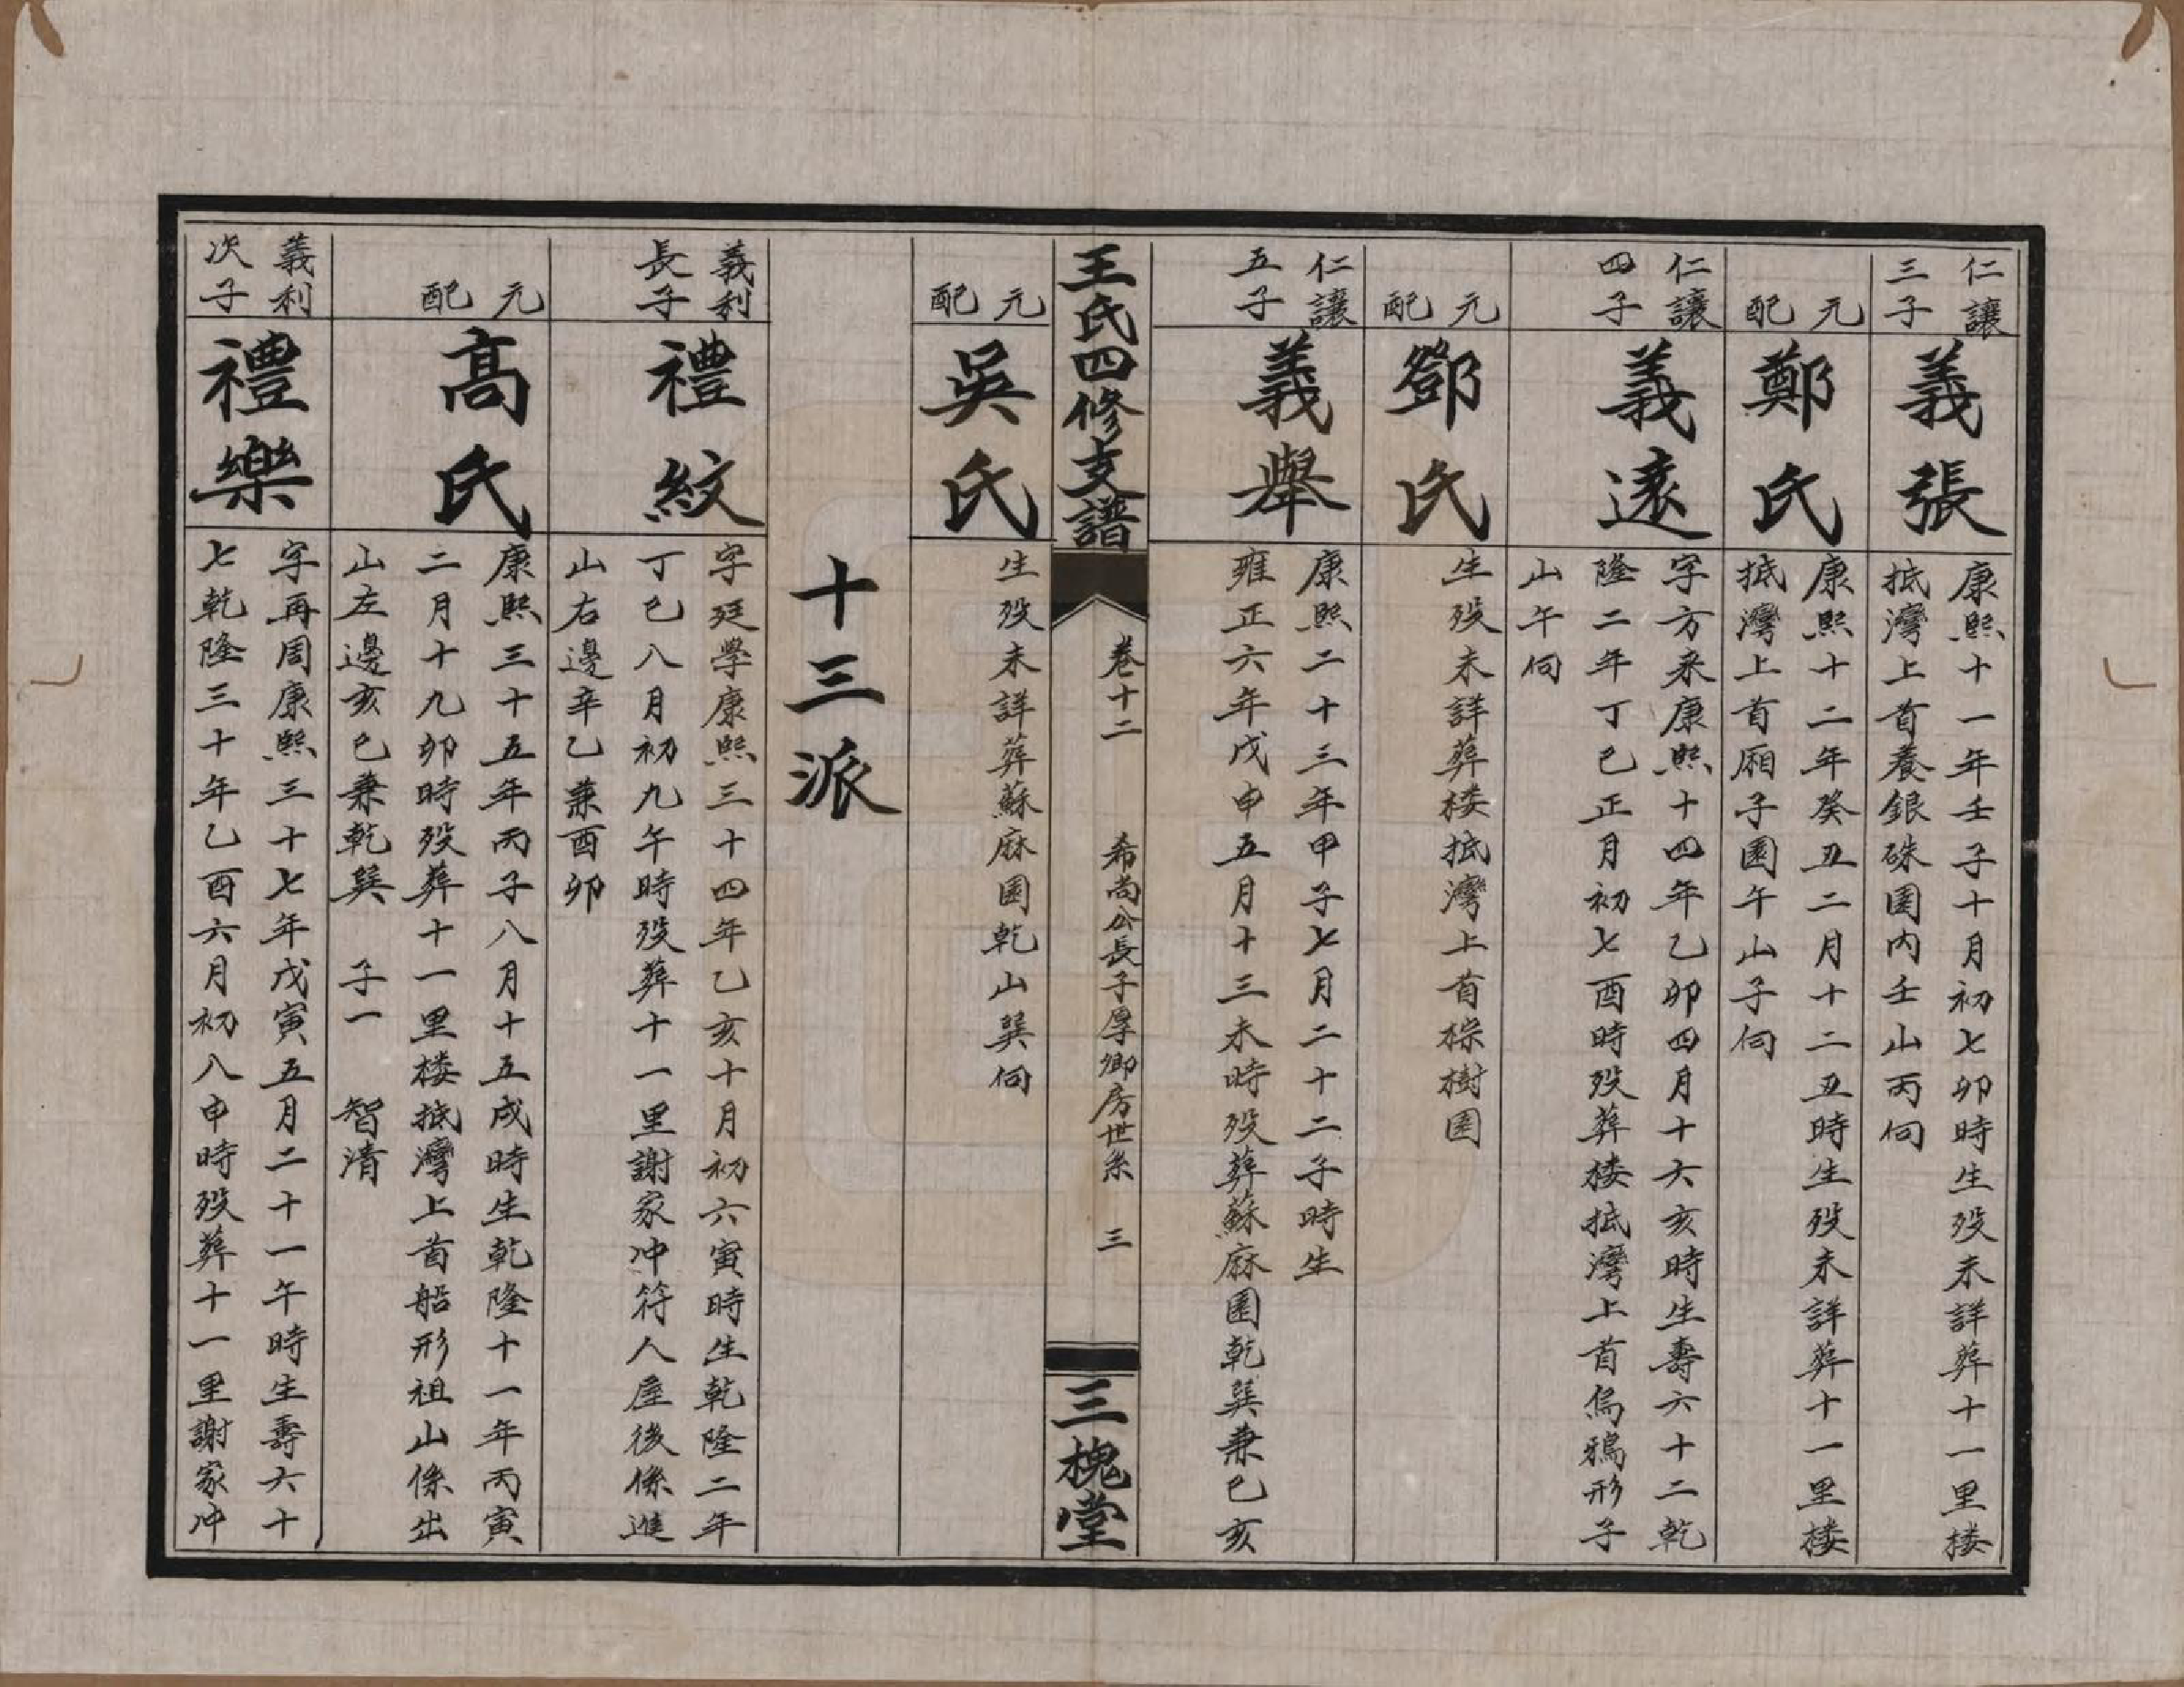 仁讓
三子
義張
康熙十一年壬子十月初七卯時生歿未詳葬十一里楼
抵灣上首養銀硃園内壬山丙向
元配
鄭氏
康熙十二年癸丑二月十二丑時生歿未詳葬十一里楼
抵灣上首厢子園午山子向
仁讓
四子
義遠
字方来康熙十四年乙卯四月十六亥時生壽六十二乾
隆二年丁巳正月初七酉時歿葬楼抵灣上首烏鴉形子
山午向
元配
鄧氏
生歿未詳葬楼抵灣上首棕樹园
仁讓
五子
義舉
康熙二十三年甲子七月二十二子時生
雍正六年戊申五月十三未時歿葬蘇麻園乾巽兼巳亥
王氏四修支譜
卷十二
希尚公長子厚卿房世系
三
三槐堂
元配
吳氏
生歿未詳葬蘇麻園乾山巽向
十三派
義利
長子
禮紋
字廷學康熙三十四年乙亥十月初六寅時生乾隆二年
丁巳八月初九午時歿葬十一里謝家冲符人屋後係進
山右邊辛乙兼酉卯
元配
高氏
康熙三十五年丙子八月十五戌時生乾隆十一年丙寅
二月十九卯時歿葬十一里楼抵灣上首船形祖山係出
山左邊亥巳兼乾巽 子一 智清
義利
次子
禮樂
字再周康熙三十七年戊寅五月二十一午時生壽六十
七乾隆三十年乙酉六月初八申時歿葬十一里謝家冲